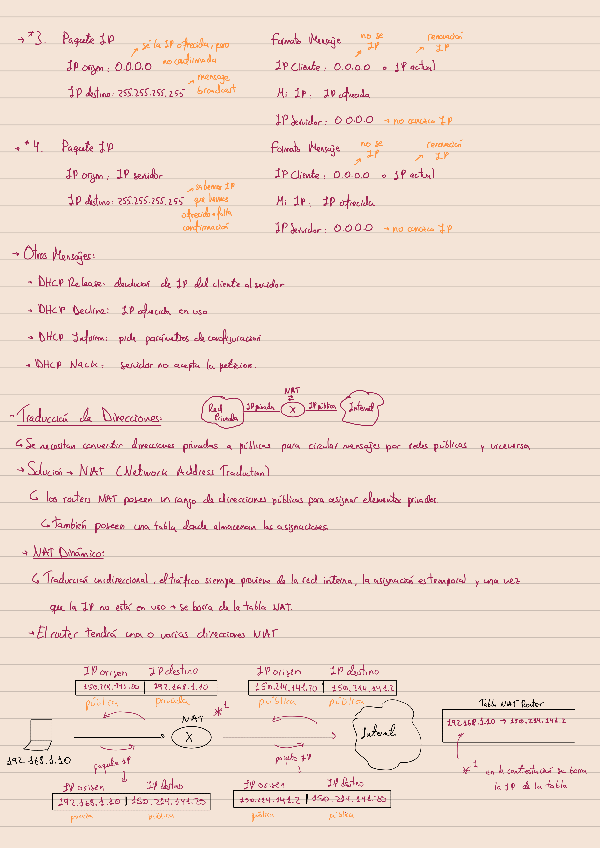 → *3. Paquete IP
sé la IP ofrecida, pero no confirmada
IP origen: 0.0.0.0
mensaje broadcast
IP destino: 255.255.255.255
Formato Mensaje
no se IP
renovación IP
IP Cliente: 0.0.0.0 o IP actual
Mi IP: IP ofrecida
IP Servidor: 0.0.0.0 → no conozco IP
→ *4. Paquete IP
IP origen: IP servidor
IP destino: 255.255.255.255
sabemos IP
que hemos
ofrecido + falta
confirmación
Formato Mensaje
no se IP
renovación IP
IP Cliente: 0.0.0.0 o IP actual
Mi IP: IP ofrecida
IP Servidor: 0.0.0.0 → no conozco IP
→ Otros Mensajes:
→ DHCP Release: devolución de IP del cliente al servidor
→ DHCP Decline: IP ofrecida en uso
→ DHCP Inform: pide parámetros de configuración
→ DHCP Nack: servidor no acepta la petición.
→ Traducción de Direcciones:
Red Privada
IP privada
NAT
X
IP pública
Internet
Se necesitan convertir direcciones privadas a públicas para circular mensajes por redes públicas y viceversa
→ Solución → NAT (Network Address Traduction)
los routers NAT poseen un rango de direcciones públicas para asignar elementos privados
También poseen una tabla donde almacenan las asignaciones
→ NAT Dinámico:
Traducción unidireccional, el tráfico siempre proviene de la red interna, la asignación es temporal y una vez
que la IP no está en uso → se borra de la tabla NAT.
→ El router tendrá una o varias direcciones NAT
IP origen IP destino
192.168.1.10
pública privada
IP origen IP destino
150.214.141.2
pública pública
192.168.1.10
NAT
X
*1
Internet
paquete IP
paquete IP
IP origen IP destino
192.168.1.10
pública
IP origen IP destino
150.214.141.2
pública pública
Tabla NAT Router
192.168.1.10 → 150.214.141.2
*1 en la contestación se borra
la IP de la tabla